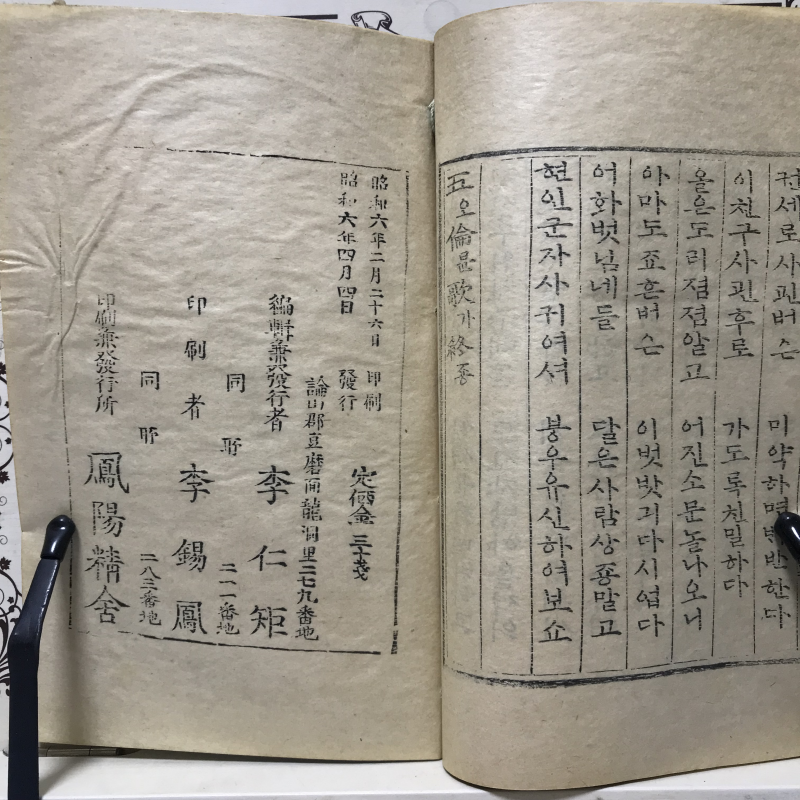 권세로사괸버슨 미약하면ᄇᆡ반한다
이친구사괸후로 가도록친밀하다
올은도리졈졈알고 어진소문놀나오니
아마도죠흔버슨 이벗밧긔다시업다
어화벗님네들 달은사람상죵말고
현인군자사귀여셔 붕우유신하여보쇼
五오倫륜歌가終죵
昭和六年二月二十六日 印刷
昭和六年四月四日 發行
定價金 三十戔
論山郡豆磨面龍洞里二七九番地
編輯兼發行者 李仁矩
同所 二一一番地
印刷者 李錫鳳
同所 二八三番地
印刷兼發行所 鳳陽精舍